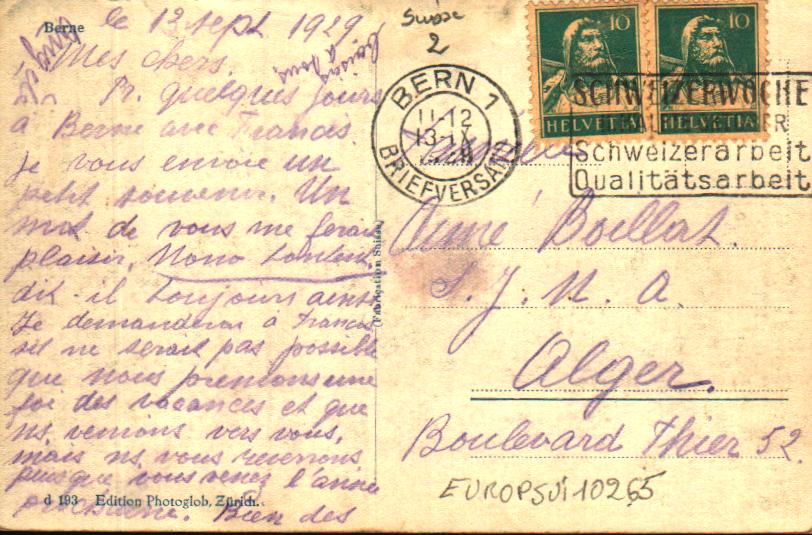 Berne
le 13 sept 1929
Mes chers.
Pr. quelques jours
à Berne avec Francis
je vous envoie un
petit souvenir. Un
mot de vous me ferait
plaisir.
dit-il toujours ainsi
Je demanderai à Francis
s'il ne serait pas possible
que nous prenions une
foi des vacances et que
ns. venions vers vous,
mais ns. vous reverrons
puisque vous venez l'année
prochaine. Bien des
d 193 Edition Photoglob, Zürich.
(Fabrication Suisse)
Suisse
2
BERN 1
11-12
13·IX
BRIEFVERSAND
10
HELVETIA
10
HELVETIA
SCHWEIZERWOCHE
Schweizerarbeit
Qualitätsarbeit
Aimé Boillat.
S. J. N. A.
Alger.
Boulevard Thier 52.
EUROPSUI10265